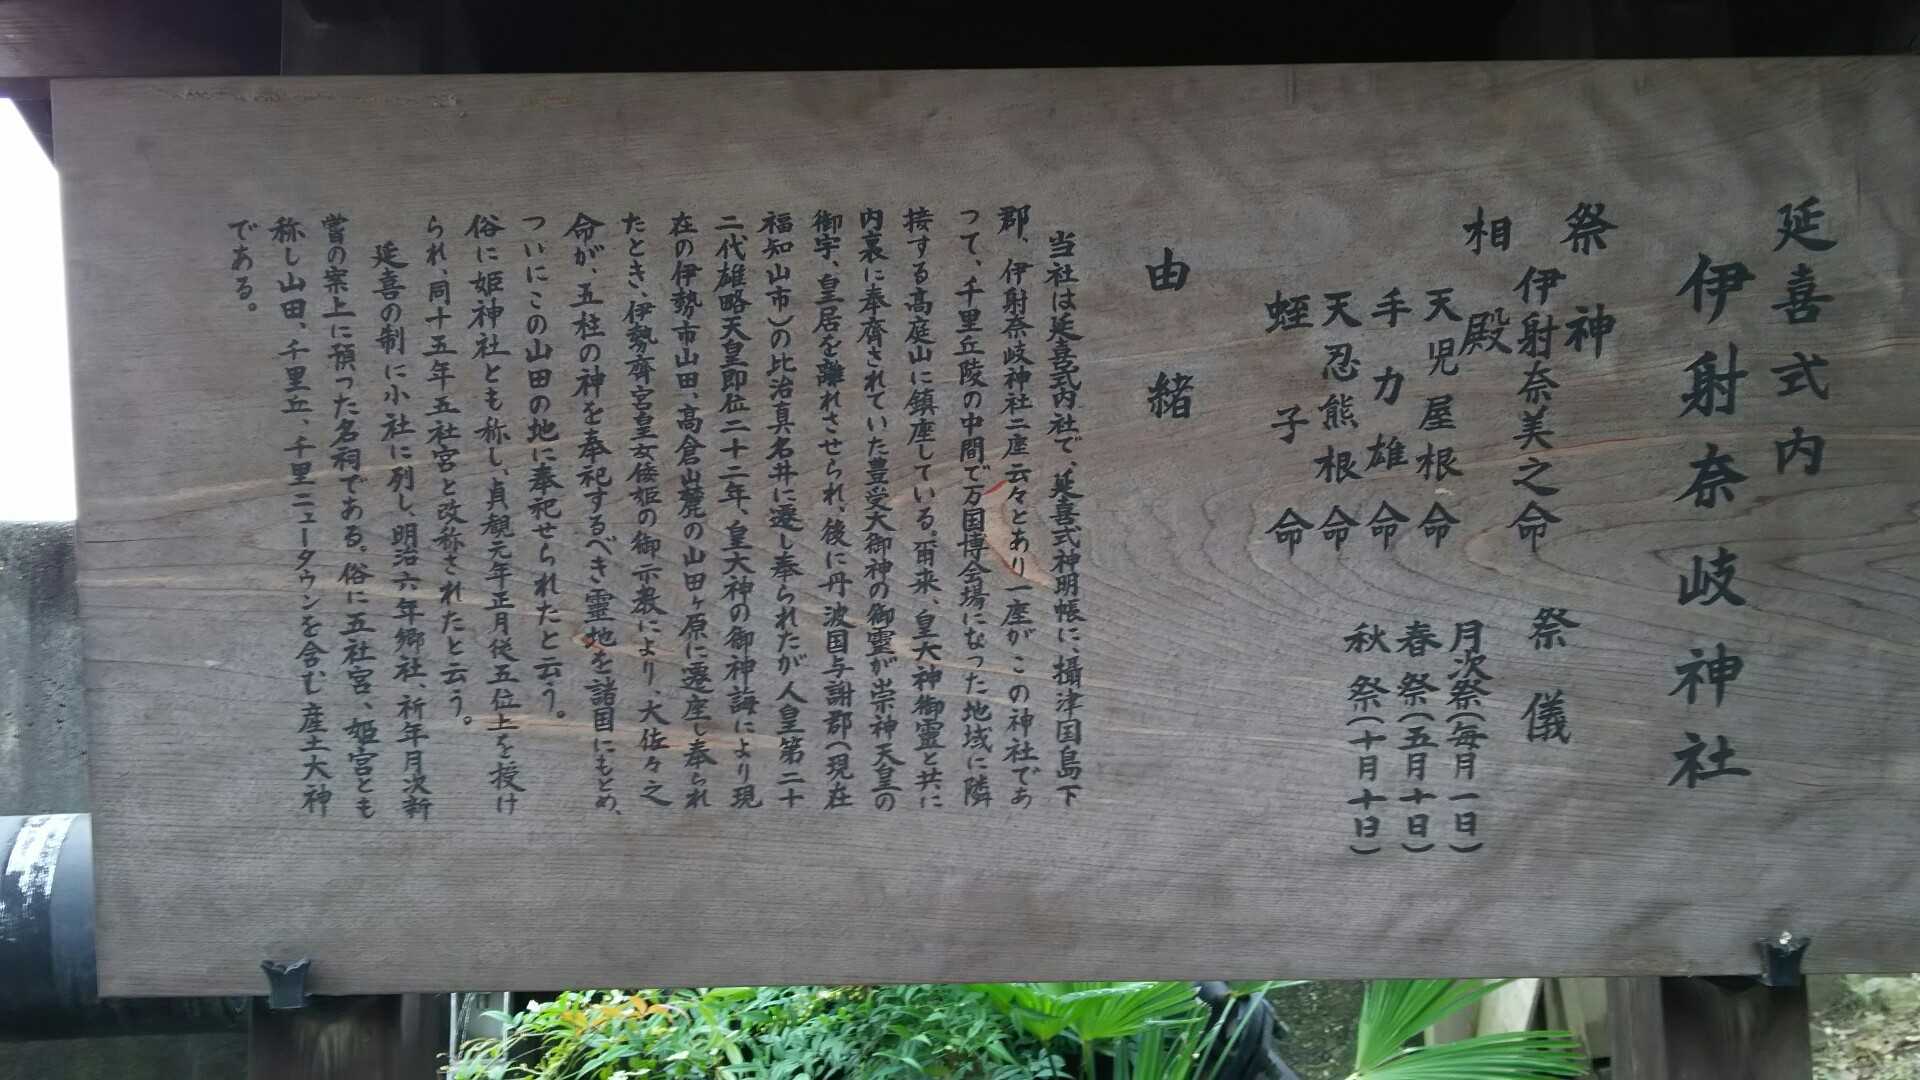 延喜式内
伊射奈岐神社
祭神
伊射奈美之命
相殿
天児屋根命
手力雄命
天忍熊根命
蛭子命
祭儀
月次祭(毎月一日)
春祭(五月十日)
秋祭(十月十日)
由緒
当社は延喜式内社で、延喜式神明帳に、攝津国島下
郡、伊射奈岐神社二座云々とあり一座がこの神社であ
つて、千里丘陵の中間で万国博会場になった地域に隣
接する高庭山に鎮座している。爾来、皇大神御霊と共に
内裏に奉齊されていた豊受大御神の御霊が崇神天皇の
御宇、皇居を離れさせられ、後に丹波国与謝郡(現在
福知山市)の比治真名井に遷し奉られたが人皇第二十
二代雄略天皇即位二十二年、皇大神の御神誨により現
在の伊勢市山田、高倉山麓の山田ヶ原に遷座し奉られ
たとき、伊勢齊宮皇女倭姫の御示教により、大佐々之
命が、五柱の神を奉祀するべき霊地を諸国にもとめ、
ついにこの山田の地に奉祀せられたと云う。
俗に姫神社とも称し、貞観元年正月従五位上を授け
られ、同十五年五社宮と改称されたと云う。
延喜の制に小社に列し、明治六年郷社、祈年月次新
嘗の案上に預った名祠である。俗に五社宮、姫宮とも
称し山田、千里丘、千里ニュータウンを含む産土大神
である。